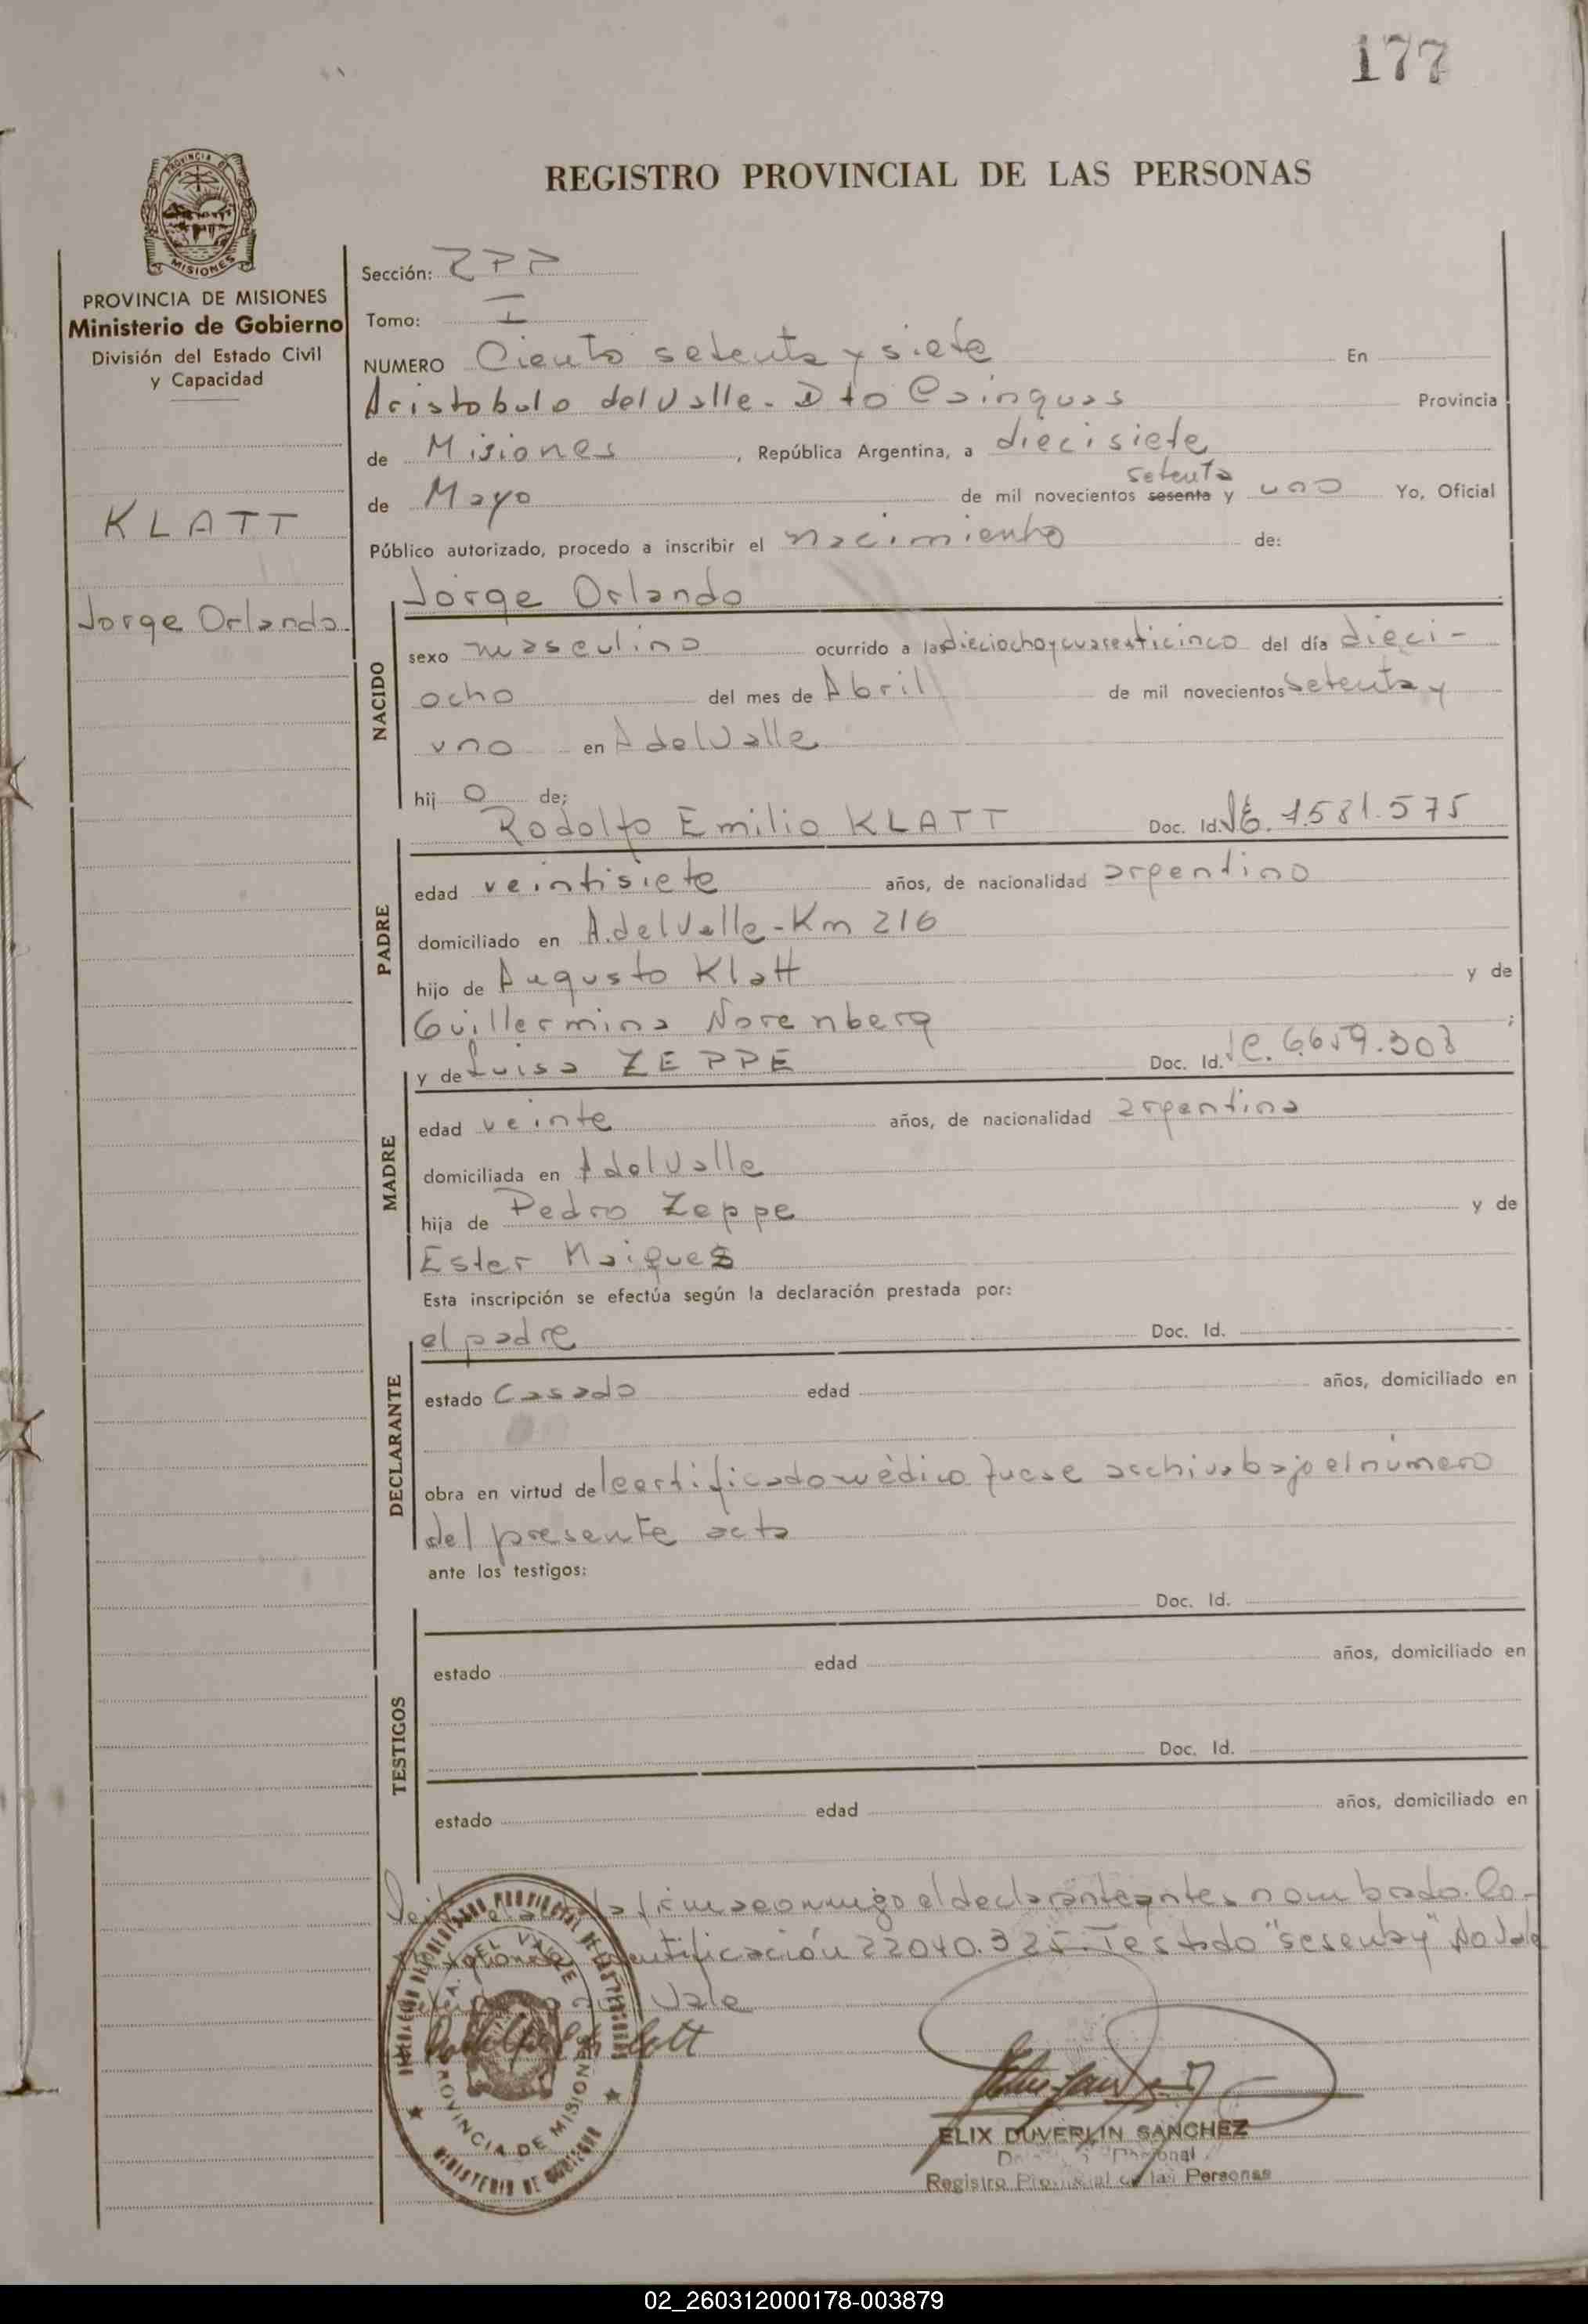 177
REGISTRO PROVINCIAL DE LAS PERSONAS
PROVINCIA DE MISIONES
Ministerio de Gobierno
División del Estado Civil
y Capacidad
KLATT
Jorge Orlando
Sección:
Tomo: I
NUMERO Ciento setenta y siete En
Aristobulo del Valle - Dto Cainguas Provincia
de Misiones, República Argentina, a diecisiete
setenta
de Mayo de mil novecientos sesenta y uno Yo, Oficial
Público autorizado, procedo a inscribir el nacimiento de:
Jorge Orlando
NACIDO
sexo masculino ocurrido a las dieciocho y cuarenticinco del día dieci-
ocho del mes de Abril de mil novecientos setenta y
uno en A del Valle
hij o de;
Rodolfo Emilio KLATT Doc. Id. 7.581.575
PADRE
edad veintisiete años, de nacionalidad argentino
domiciliado en A. del Valle - Km 216
hijo de Augusto Klatt y de
Guillermina Norenberg ;
y de Luisa ZEPPE Doc. Id. 6.659.303
MADRE
edad veinte años, de nacionalidad argentina
domiciliada en A del Valle
hija de Pedro Zeppe y de
Ester Maiques
Esta inscripción se efectúa según la declaración prestada por:
el padre Doc. Id.
DECLARANTE
estado Casado edad años, domiciliado en
obra en virtud del certificado médico que se archiva bajo el número
del presente acta
ante los testigos:
Doc. Id.
TESTIGOS
estado edad años, domiciliado en
Doc. Id.
estado edad años, domiciliado en
la firma conmigo el declarante antes nombrado. Co-
22040.325. Testado "sesenta y" No Vale
Vale
A. DEL VALLE
PROVINCIA DE MISIONES
MINISTERIO DE GOBIERNO
ELIX DUVERLIN SANCHEZ
Registro Provincial de las Personas
02_260312000178-003879